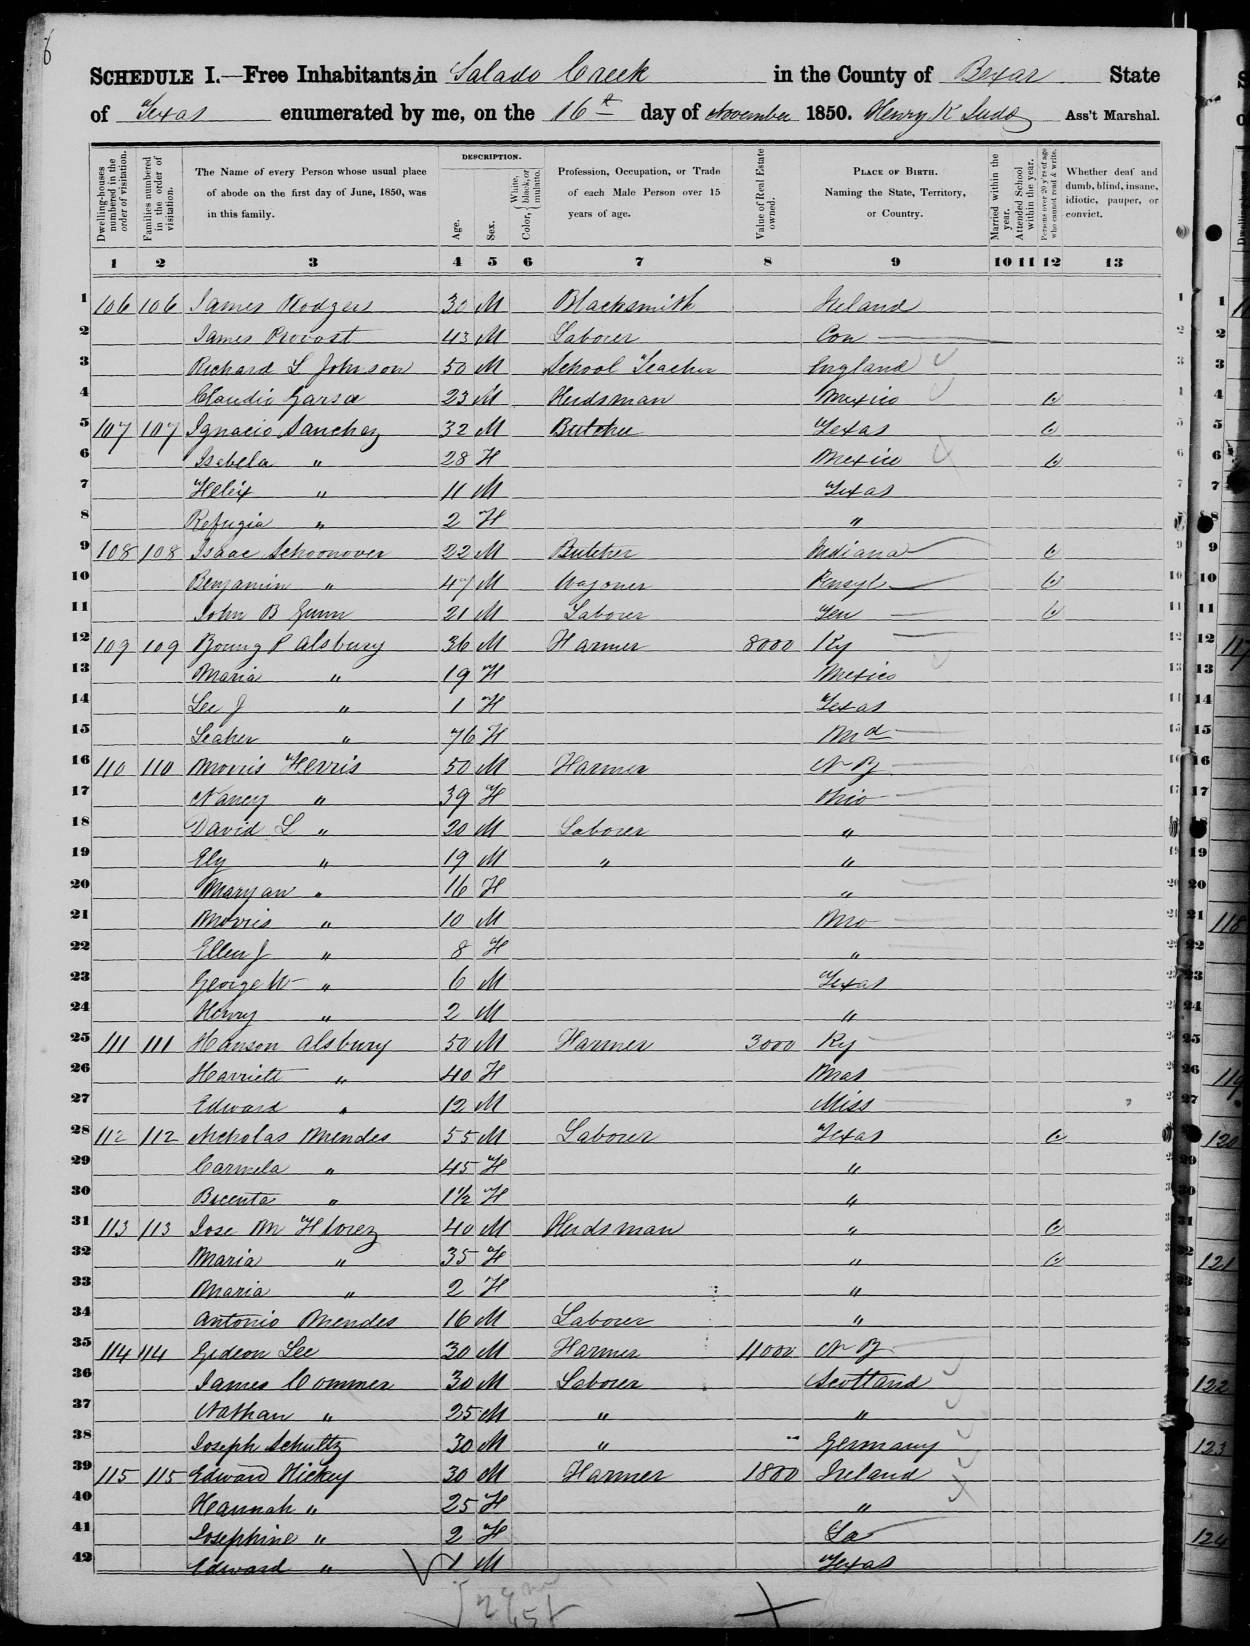 6
SCHEDULE I.—Free Inhabitants in Salado Creek in the County of Bexar State
of Texas enumerated by me, on the 16th day of November 1850. Henry K Judd Ass't Marshal.
Dwelling-houses numbered in the order of visitation.
Families numbered in the order of visitation.
The Name of every Person whose usual place of abode on the first day of June, 1850, was in this family.
DESCRIPTION.
Age.
Sex.
Color, { White, black, or mulatto.
Profession, Occupation, or Trade of each Male Person over 15 years of age.
Value of Real Estate owned.
PLACE OF BIRTH. Naming the State, Territory, or Country.
Married within the year.
Attended School within the year.
Persons over 20 y'rs of age who cannot read & write.
Whether deaf and dumb, blind, insane, idiotic, pauper, or convict.
1 2 3 4 5 6 7 8 9 10 11 12 13
1 106 106 James Rodgers 30 M Blacksmith Ireland 1
2 James Provost 43 M Laborer Con 2
3 Richard L Johnson 50 M School Teacher England 3
4 Claudio Garsa 23 M Herdsman Mexico 4
5 107 107 Ignacio Sanchez 32 M Butcher Texas 5
6 Isabela " 28 F Mexico 6
7 Felix " 11 M Texas 7
8 Refugia " 2 F " 8
9 108 108 Isaac Schoonover 22 M Butcher Indiana 9
10 Benjamin " 47 M Wagoner Pensyl 10
11 John B Gunn 21 M Laborer Ten 11
12 109 109 Young P Alsbury 36 M Farmer 8000 Ky 12
13 Maria " 19 F Mexico 13
14 Lee J " 1 F Texas 14
15 Leaher " 76 F Md 15
16 110 110 Morris Ferris 50 M Farmer N Y 16
17 Nancy " 39 F Ohio 17
18 David L " 20 M Laborer " 18
19 Ely " 19 M " " 19
20 Maryan " 16 F " 20
21 Morris " 10 M Mo 21
22 Ellen J " 8 F " 22
23 George W " 6 M Texas 23
24 Henry " 2 M " 24
25 111 111 Hanson Alsbury 50 M Farmer 3000 Ky 25
26 Harriett " 40 F Mas 26
27 Edward " 12 M Miss 27
28 112 112 Nicholas Mendes 55 M Laborer Texas
29 Carmela " 45 F " 29
30 " 1½ F " 30
31 113 113 Jose M Florez 40 M Herdsman " 31
32 Maria " 35 F " 32
33 Maria " 2 F " 33
34 Antonio Mendes 16 M Laborer "
35 114 114 Gideon Lee 30 M Farmer 11000 N Y
36 James Commer 30 M Laborer Scottland
37 Nathan " 25 M " "
38 Joseph Schultz 30 M " Germany
39 115 115 Edward Hickey 30 M Farmer 1800 Ireland
40 Hannah " 25 F "
41 Josephine " 2 F La
42 Edward " 1 M Texas